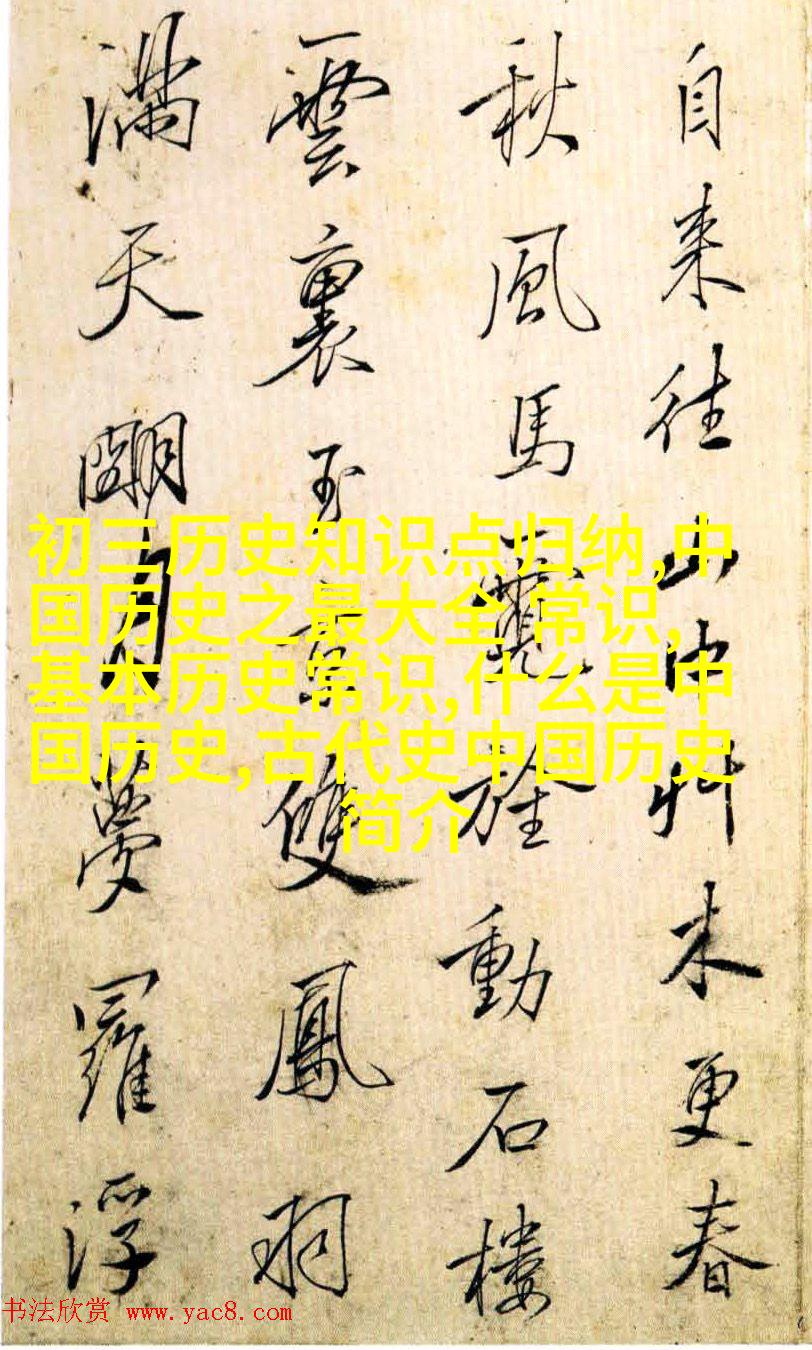 自来往山中艸木更春
秋風馬鬣旌動石樓
雲裏玉京雙鳳羽
满天明月夢羅浮
初三历史知识点归纳,中
国历史之最大全 常识,
基本历史常识,什么是中
国历史,古代史中国历史
简介
书法欣赏 www.yac8.com